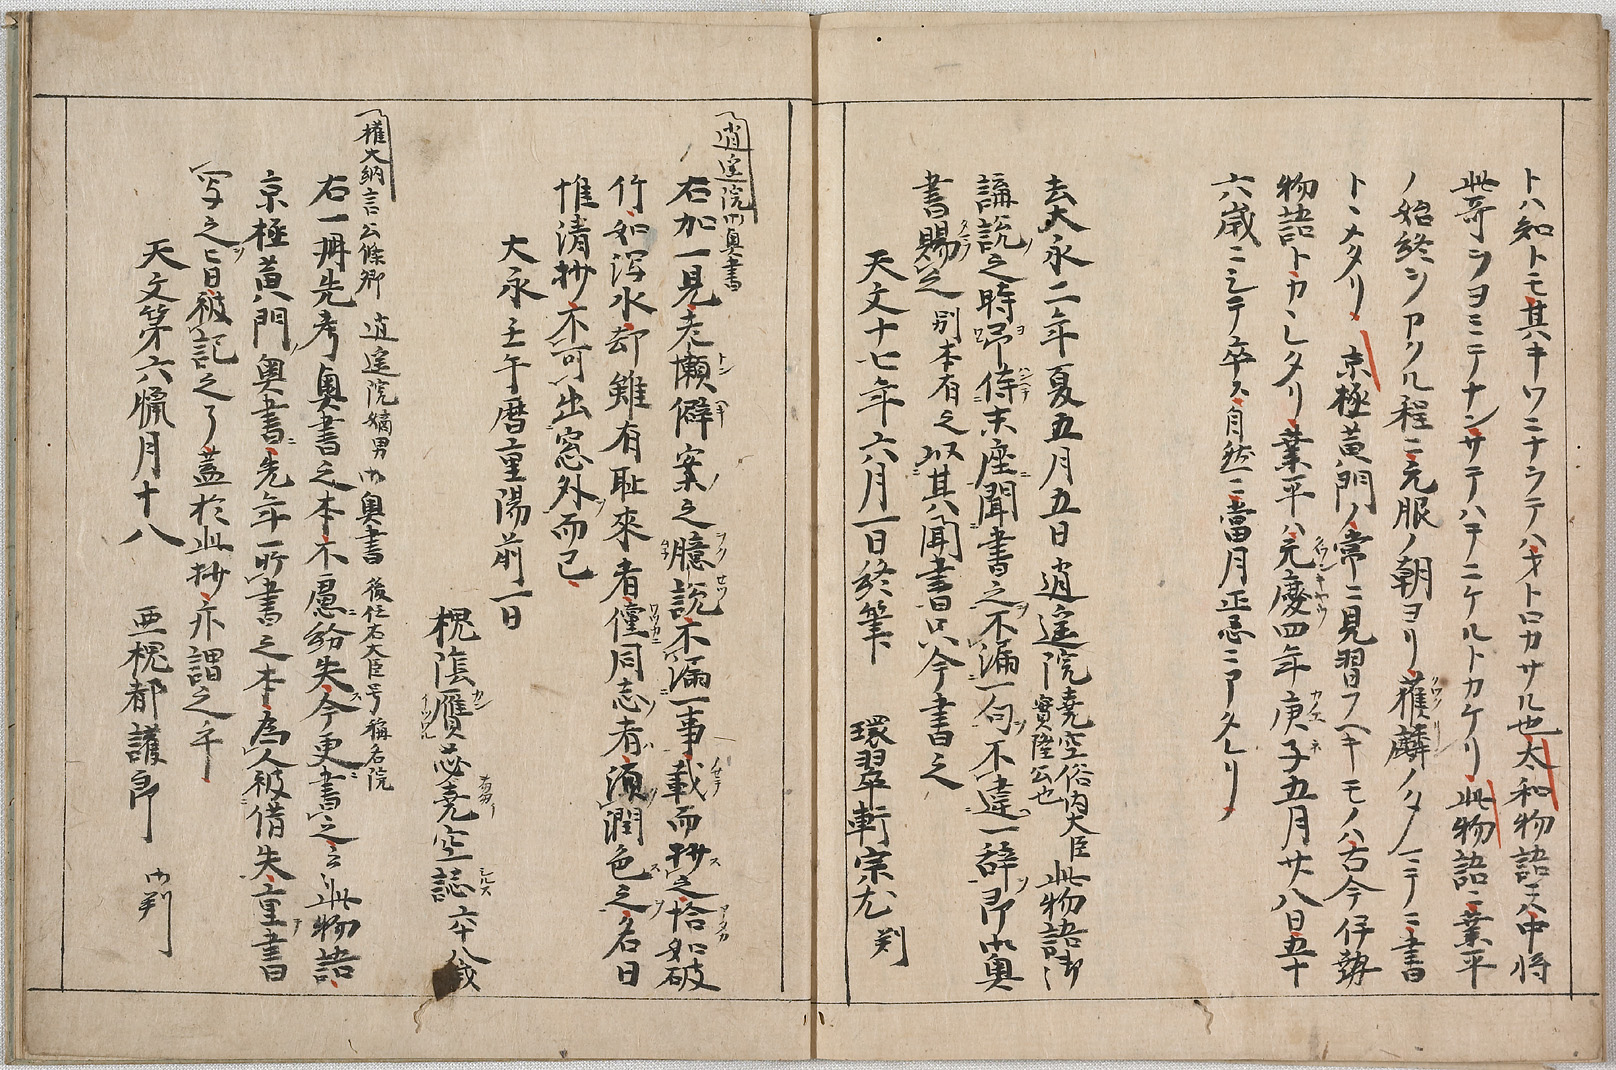 トハ知トモ其キワニナラテハオトロカサル也大和物語ニハ中将
此哥ヲヨミテナンサテハテニケルトカケリ此物語ニ業平
ノ始終シアリクル程ニ元服ノ朝ヨリ獲麟ノタノミテニ書
トヽメタリ京極黄門ノ常ニ見習フヘキモノハ古今伊勢
物語トカヽレタリ業平ハ元慶四年庚子五月廿八日五十
六歳ニシテ卒ス自然ニ當月正忌ニアタレリ
去大永二年夏五月五日逍遥院堯空俗内大臣實隆公也此物語御
講説之時予侍末座聞書之不漏一句不違一辞即出奥
書賜之別本有之以其聞書只今書之
天文十七年六月一日終筆 環翠軒宗尤判
逍遥院御奥書
右加一見老懶僻案之臆説不漏一事載而抄之恰如破
竹如瀉水却雖有耻來者僅同志者須潤色之名曰
惟清抄不可出窓外而已
大永壬午暦重陽前一日
槐陰贋苾堯空誌六十八歳
權大納言公條卿 逍遥院嫡男御奥書 後任右大臣号稱名院
右一冊先考奥書之本不慮紛失今更書之云此物語
京極黄門奥書先年所書之本為人被借失重書
写之已曰被記之了蓋於此抄亦謂之乎
天文第六臘月十八 亜槐都護郎 御判